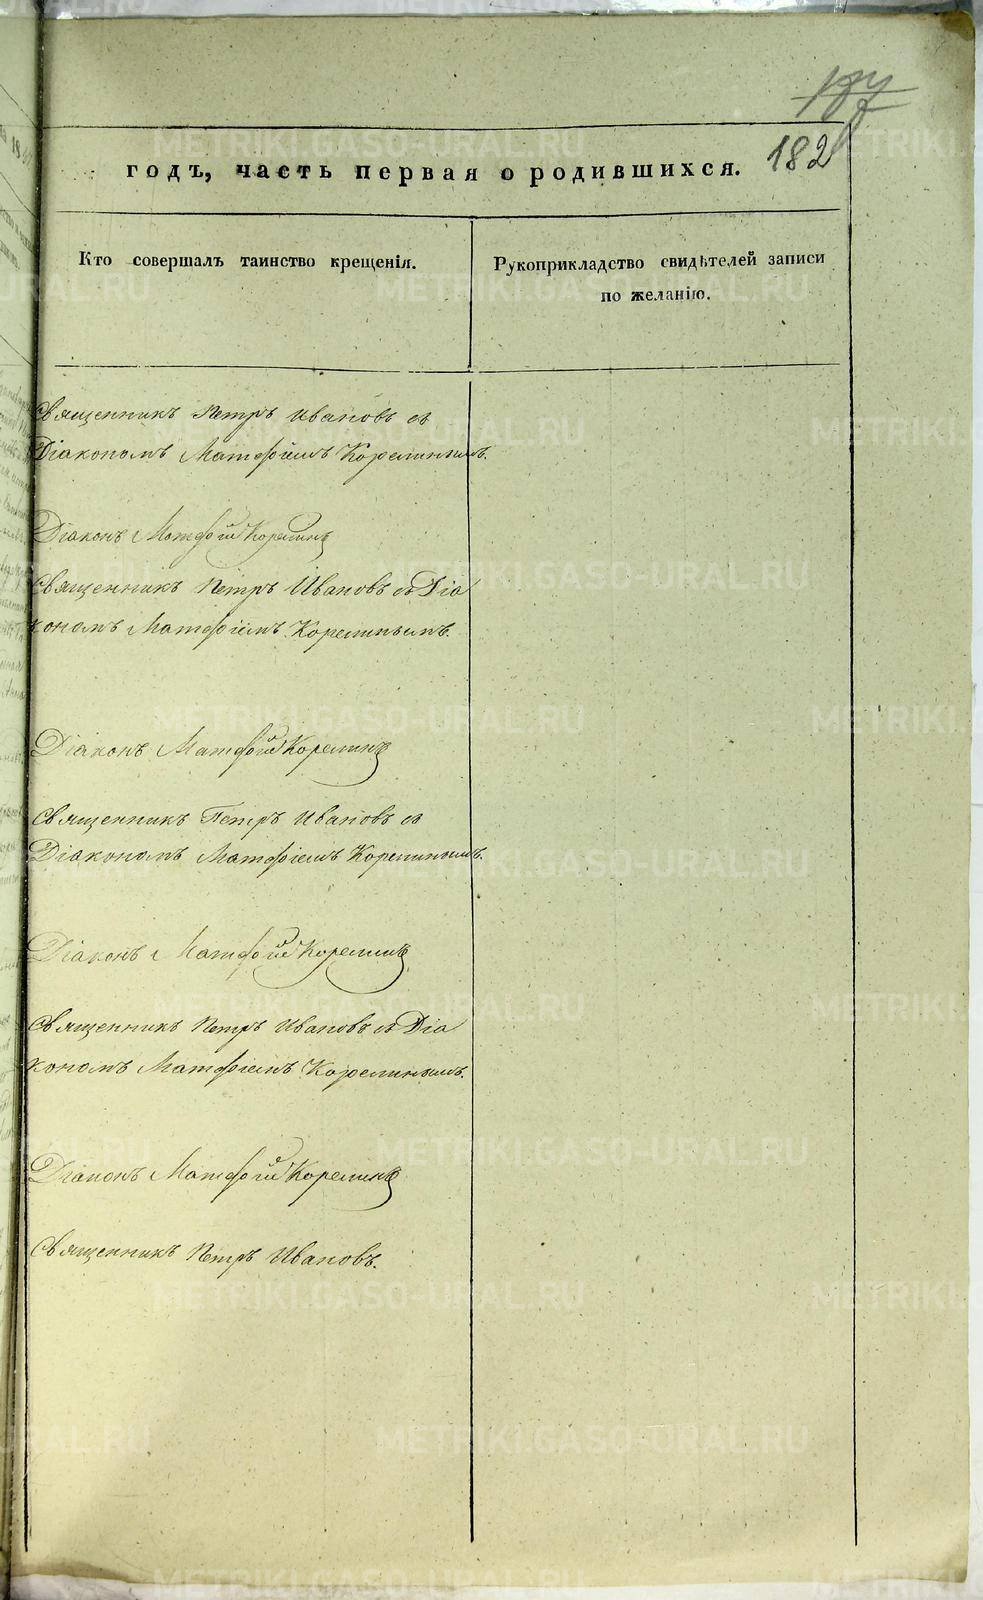 182
годъ, часть первая о родившихся.
Кто совершалъ таинство крещенія.
Рукоприкладство свидѣтелей записи
по желанію.
Священникъ Петръ Ивановъ съ
Діакономъ Матфіемъ Корелинымъ.
Діаконъ Матфій Корелинъ
Священникъ Петръ Ивановъ съ Діа
кономъ Матфіемъ Корелинымъ.
Діаконъ Матфій Корелинъ
Священникъ Петръ Ивановъ съ
Діакономъ Матфіемъ Корелинымъ.
Діаконъ Матфій Корелинъ
Священникъ Петръ Ивановъ съ Діа
кономъ Матфіемъ Корелинымъ.
Діаконъ Матфій Корелинъ
Священникъ Петръ Ивановъ.
METRIKI.GASO-URAL.RU